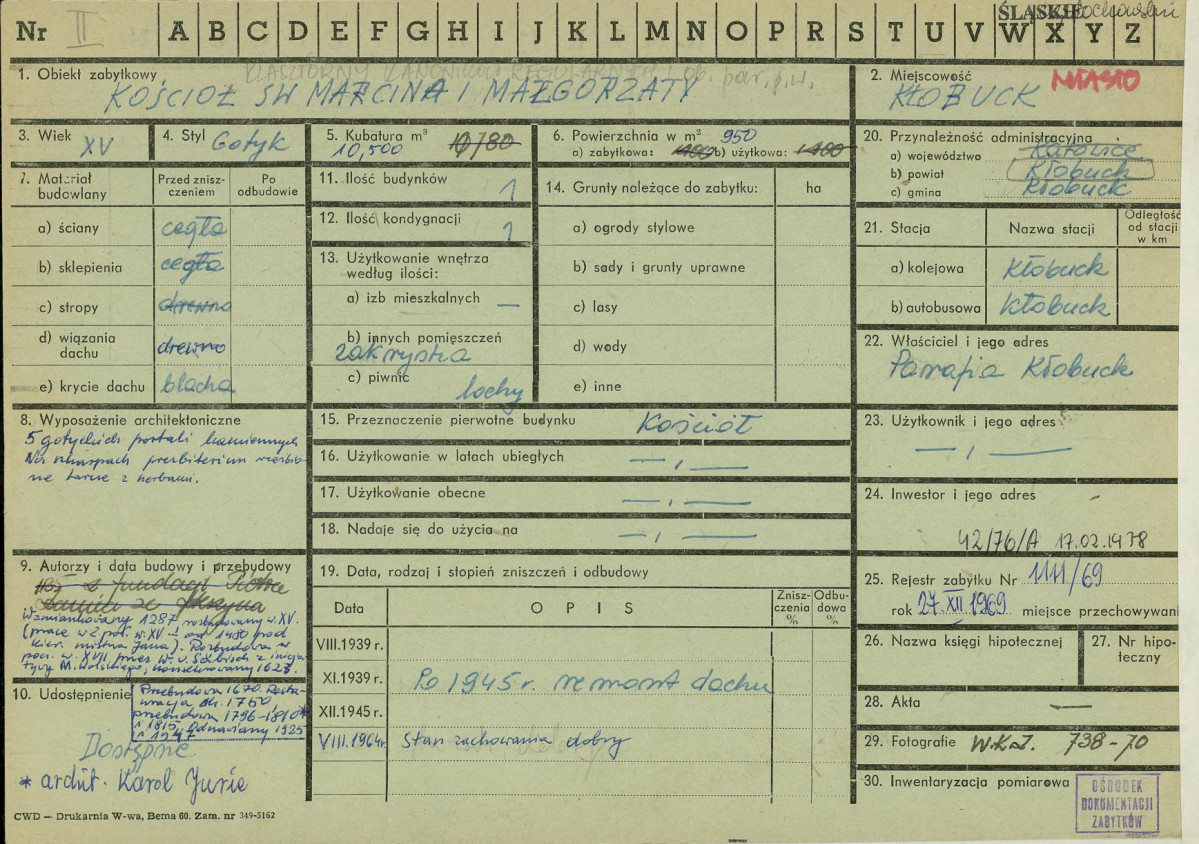 ŚLĄSKIE
Nr II A B C D E F G H I J K L M N O P R S T U V W X Y Z
1. Obiekt zabytkowy
KLASZTORNY KANONIKÓW REGULARNYCH ob. par. p.w.
KOŚCIÓŁ SW MARCINA I MAŁGORZATY
2. Miejscowość MIASTO
KŁOBUCK
3. Wiek
XV
4. Styl Gotyk
5. Kubatura m³
10,500
6. Powierzchnia w m² 950
a) zabytkowa: b) użytkowa:
20. Przynależność administracyjna
a) województwo Katowice
b) powiat Kłobuck
c) gmina Kłobuck
7. Materiał budowlany
Przed zniszczeniem
Po odbudowie
a) ściany cegła
b) sklepienia cegła
c) stropy drewno
d) wiązania dachu drewno
e) krycie dachu blacha
11. Ilość budynków 1
12. Ilość kondygnacji 1
13. Użytkowanie wnętrza
według ilości:
a) izb mieszkalnych —
b) innych pomięszczeń
zakrystia
c) piwnic
lochy
14. Grunty należące do zabytku: ha
a) ogrody stylowe
b) sady i grunty uprawne
c) lasy
d) wody
e) inne
21. Stacja Nazwa stacji Odległość od stacji w km
a) kolejowa Kłobuck
b) autobusowa Kłobuck
22. Właściciel i jego adres
Parafia Kłobuck
8. Wyposażenie architektoniczne
5 gotyckich portali kamiennych
Na skarpach prezbiterium rzeźbio
ne tarcze z herbami.
15. Przeznaczenie pierwotne budynku Kościół
16. Użytkowanie w latach ubiegłych — , —
17. Użytkowanie obecne — , —
18. Nadaje się do użycia na — , —
23. Użytkownik i jego adres
— , —
24. Inwestor i jego adres -
42/76/A 17.02.1978
9. Autorzy i data budowy i przebudowy
z fundacji Piotra
Wzmiankowany 1287 rozbudowany w. XV.
(prace w 2 poł. w. XV - ok 1450 pod
kier. mistrza Jana). Rozbudowa w
pocz. w. XVII przez W. v. z inicja
tywy M. Wolskiego, konsekrowany 1628.
Przebudowa 1670. Resta-
uracja ok. 1750,
przebudowa 1796-1810*
i 1815. Odnawiany 1925
i 1947
10. Udostępnienie
Dostępne
* archit. Karol Jurie
19. Data, rodzaj i stopień zniszczeń i odbudowy
Data OPIS Zniszczenia % Odbudowa %
VIII.1939 r.
XI.1939 r. Po 1945 r. remont dachu
XII.1945 r.
VIII.1964r. Stan zachowania dobry
25. Rejestr zabytku Nr 1111/69
rok 27 XII 1969 miejsce przechowywani
26. Nazwa księgi hipotecznej
27. Nr hipoteczny
28. Akta —
29. Fotografie W.K.Z. 738-70
30. Inwentaryzacja pomiarowa
OŚRODEK
DOKUMENTACJI
ZABYTKÓW
CWD — Drukarnia W-wa, Bema 60. Zam. nr 349-5162